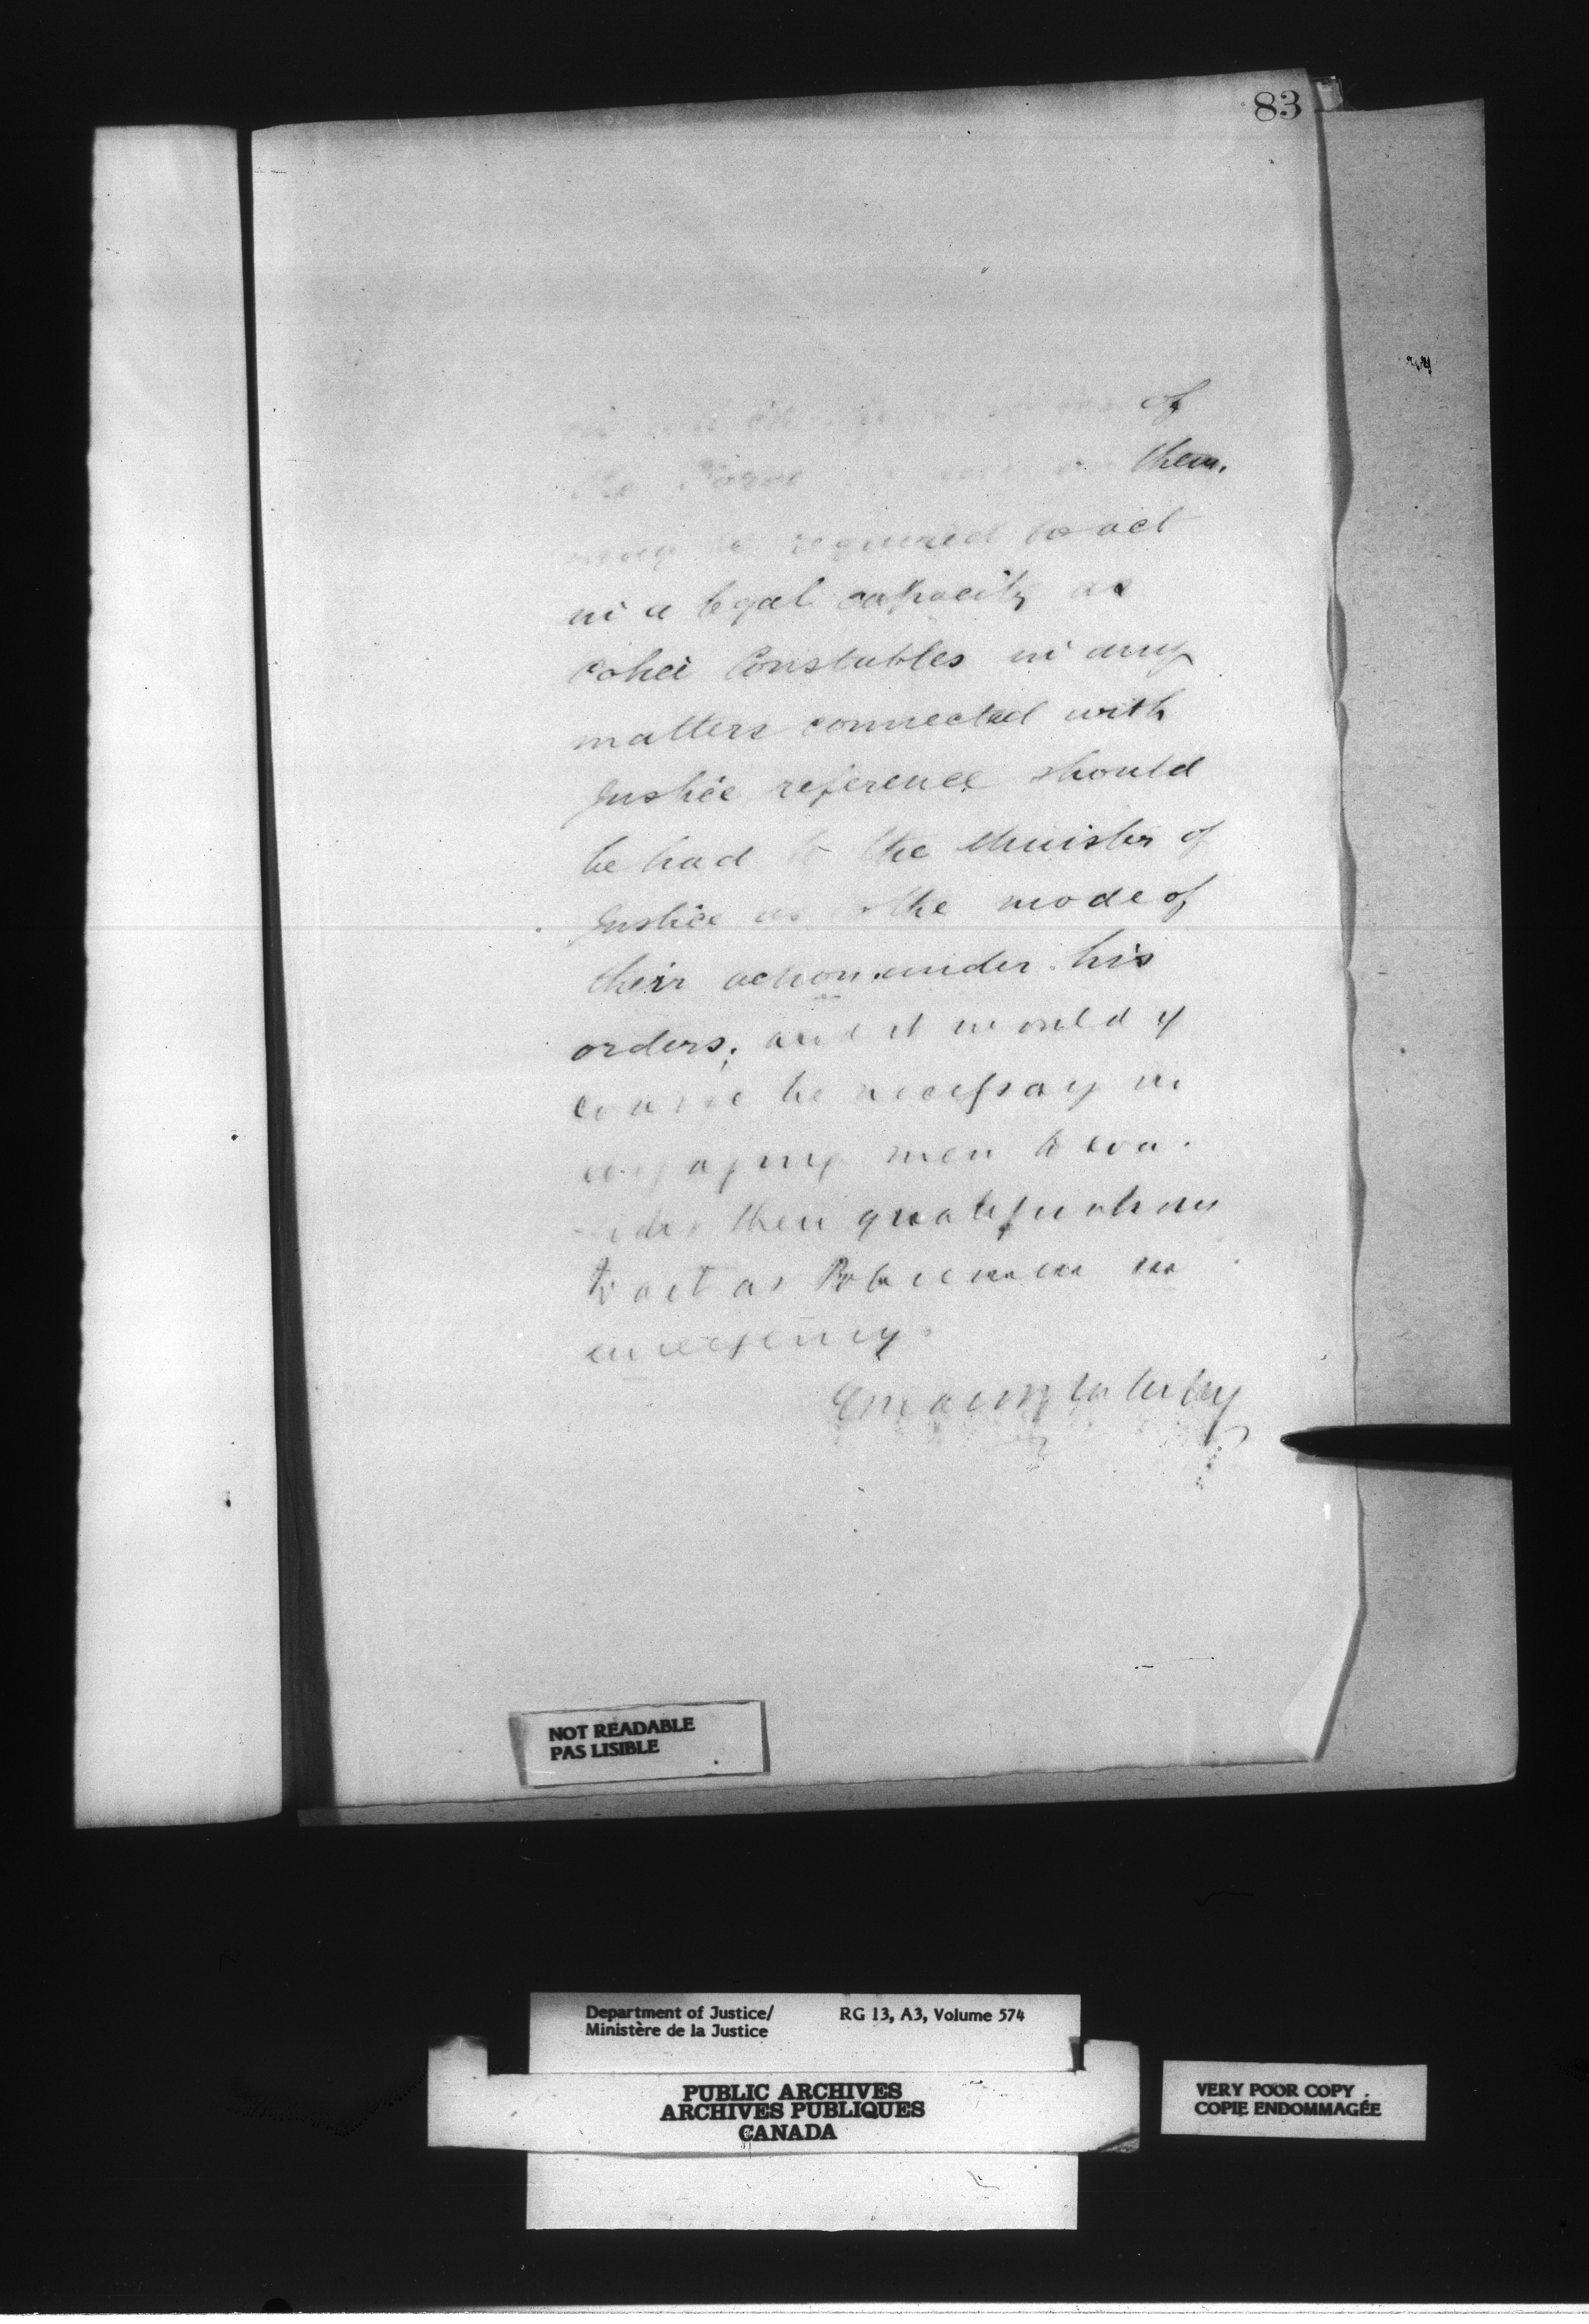 83
of
the Force them.
may be required to act
in a legal capacity as
Police Constables in any
matters connected with
Justice reference should
be had to the Minister of
Justice as the mode of
their action under his
orders; and it would of
course be necessary in
engaging men to con-
sider their qualifications
to act as Policemen in
emergency.
NOT READABLE
PAS LISIBLE
Department of Justice/ RG 13, A3, Volume 574
Ministère de la Justice
PUBLIC ARCHIVES
ARCHIVES PUBLIQUES
CANADA
VERY POOR COPY
COPIE ENDOMMAGÉE